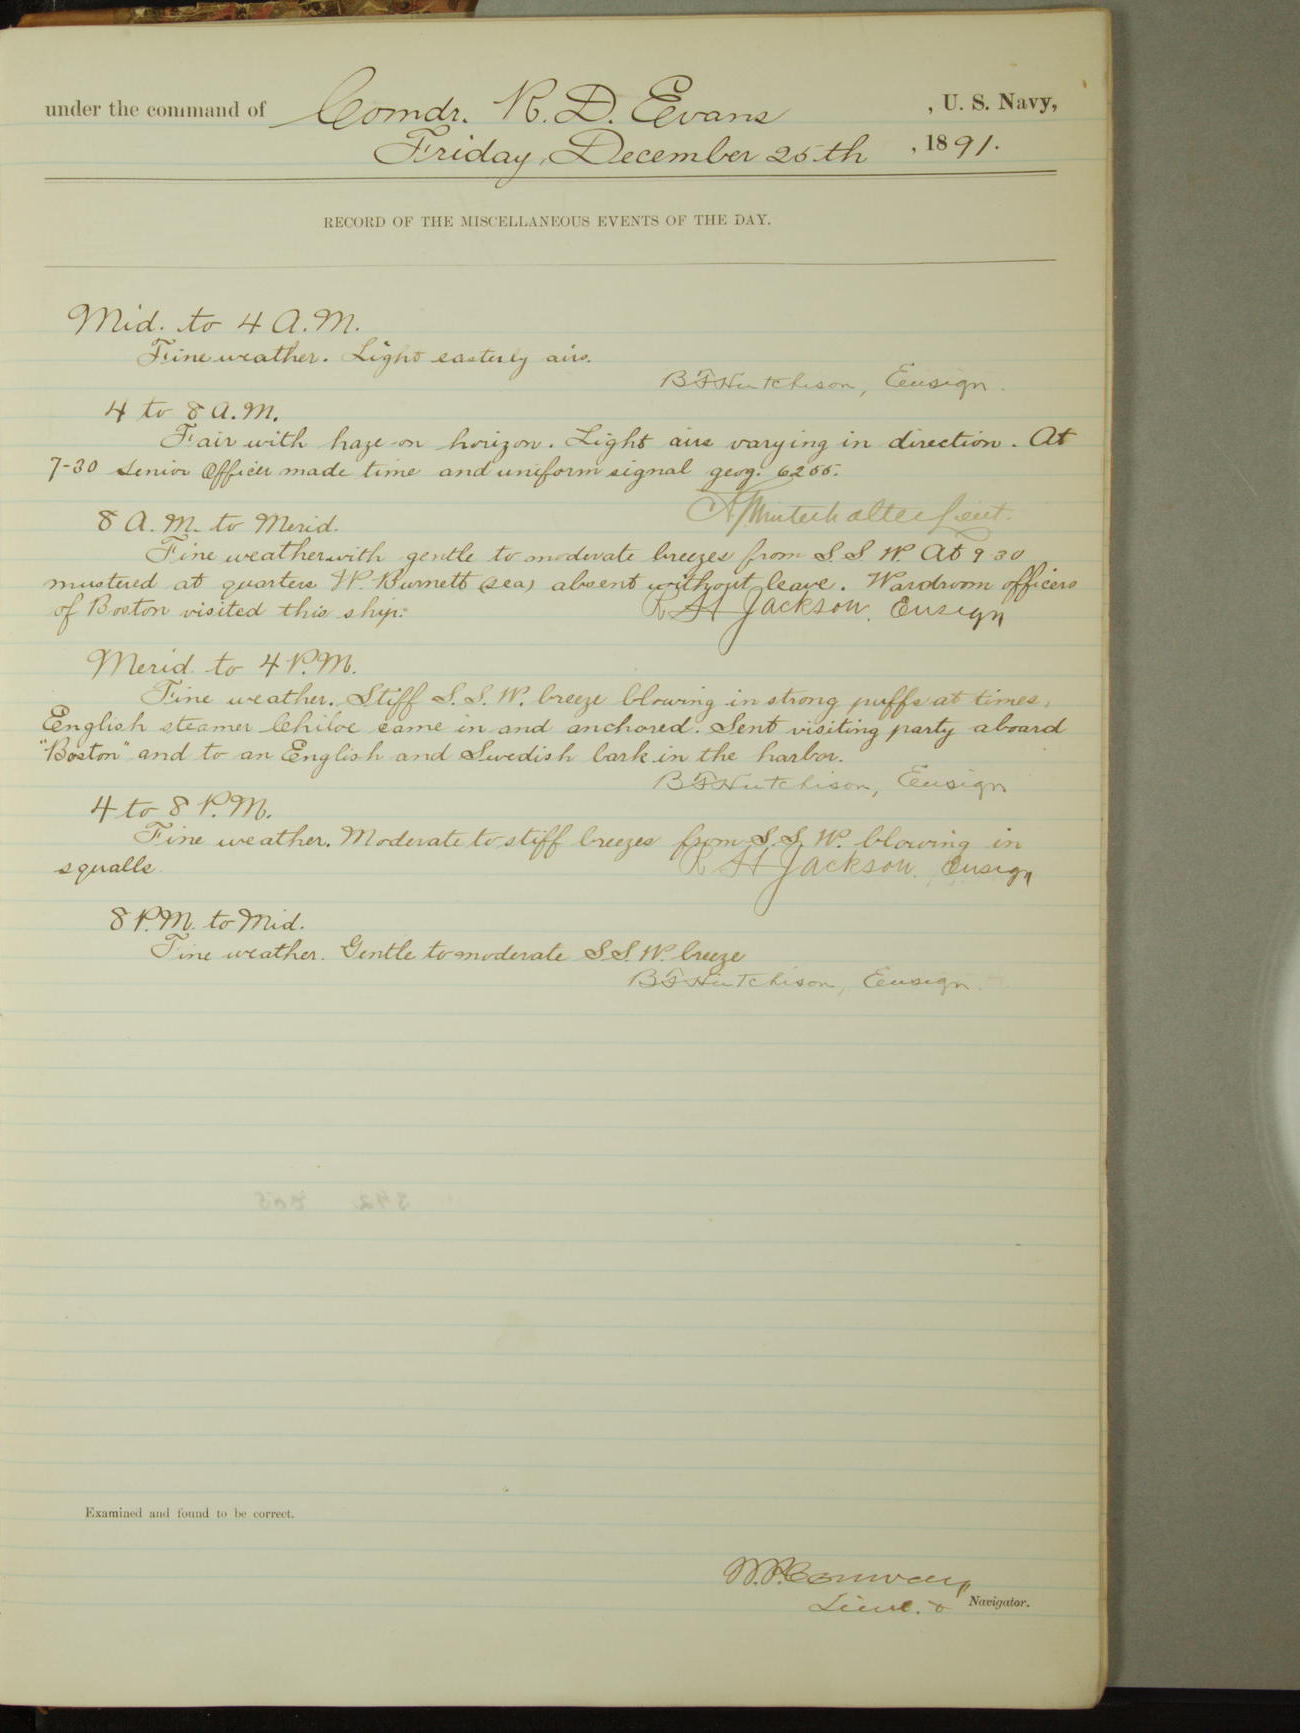 under the command of Comdr. R. D. Evans , U. S. Navy,
Friday, December 25th , 1891.
RECORD OF THE MISCELLANEOUS EVENTS OF THE DAY.
Mid. to 4 A.M.
Fine weather. Light easterly airs.
B F Hutchison, Ensign.
4 to 8 A.M.
Fair with haze on horizon. Light airs varying in direction. At
7-30 Senior Officer made time and uniform signal geog. 6255.
A Winterhalter Lieut.
8 A.M. to Merid.
Fine weather with gentle to moderate breezes from S.S.W. At 9 30
mustered at quarters W. Burnett (sea) absent without leave. Wardroom officers
of Boston visited this ship.
R H Jackson, Ensign
Merid. to 4 P.M.
Fine weather. Stiff S.S.W. breeze blowing in strong puffs at times,
English steamer Chiloe came in and anchored. Sent visiting party aboard
"Boston" and to an English and Swedish bark in the harbor.
B F Hutchison, Ensign
4 to 8 P.M.
Fine weather. Moderate to stiff breezes from S.S.W. blowing in
squalls
R H Jackson, Ensign
8 P.M. to Mid.
Fine weather. Gentle to moderate S.S.W. breeze
B F Hutchison, Ensign.
Examined and found to be correct.
W.P. Conway
Lieut. & Navigator.